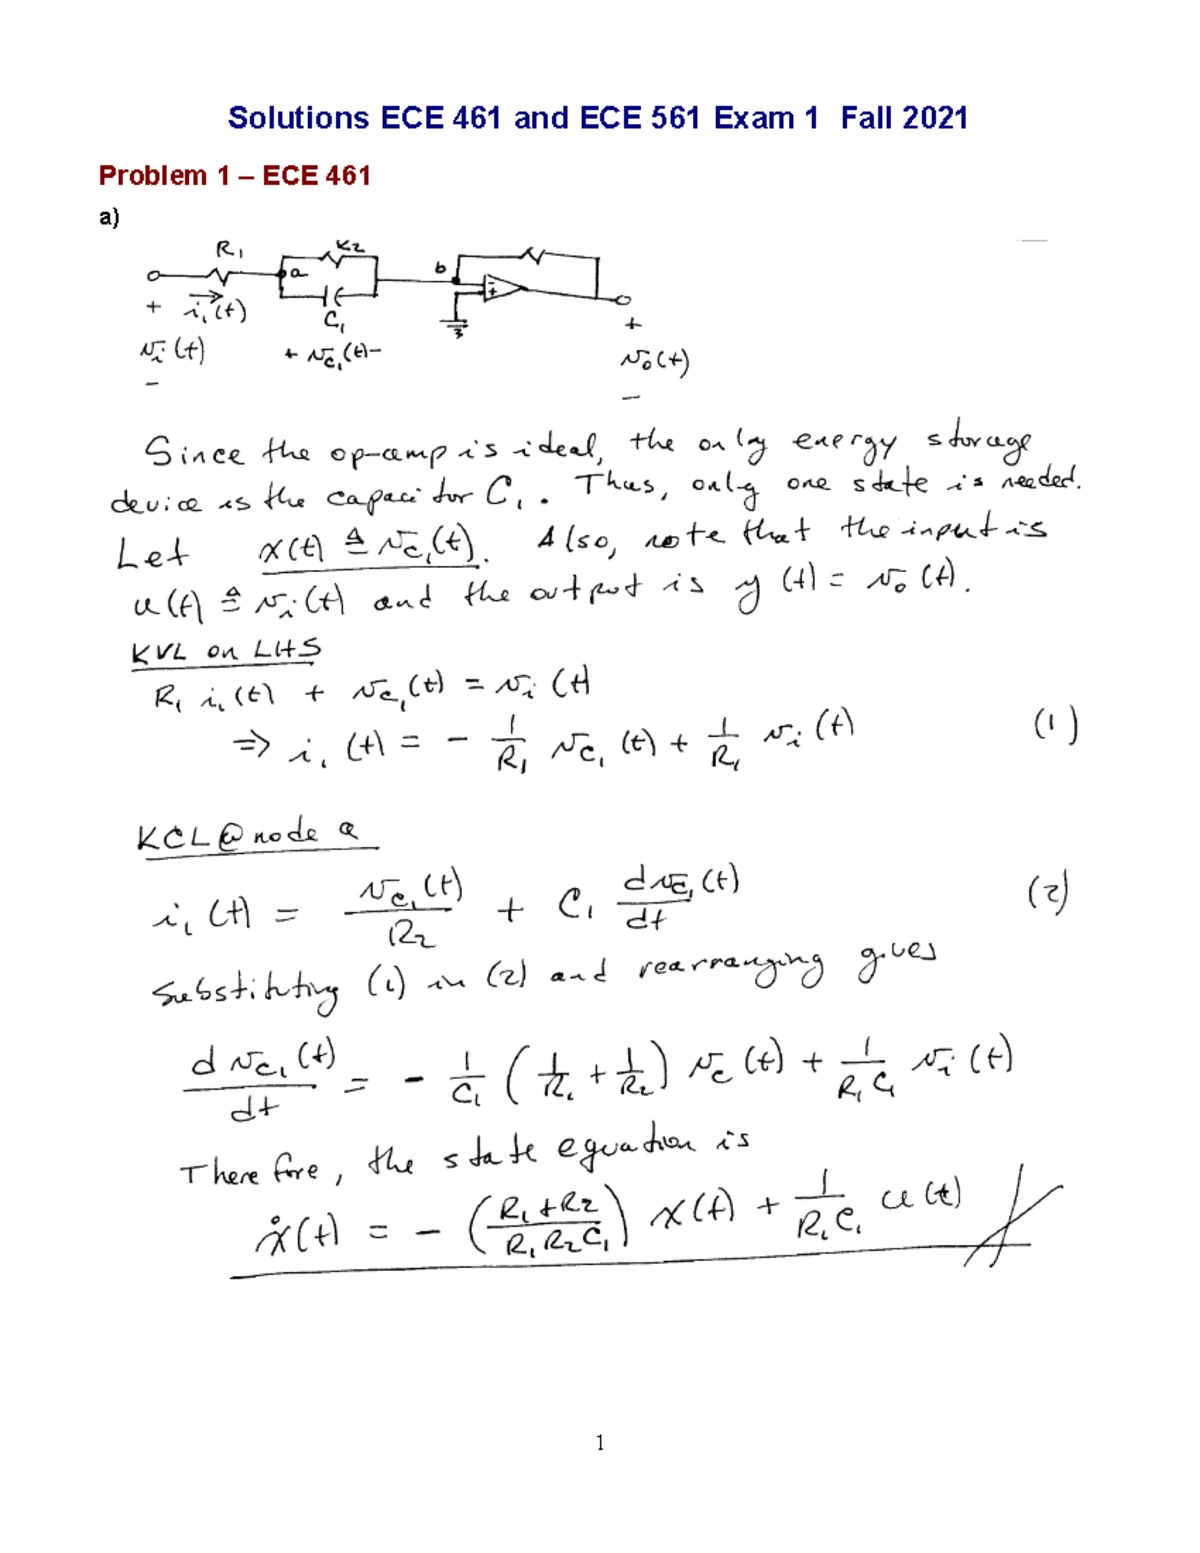 Solutions ECE 461 and ECE 561 Exam 1 Fall 2021
Problem 1 – ECE 461
a)
R₁ R₂
a b
+ i₁(t) C₁ +
vᵢ(t) + v_C₁(t) − v₀(t)
− −
Since the op-amp is ideal, the only energy storage
device is the capacitor C₁. Thus, only one state is needed.
Let x(t) ≜ v_C₁(t). Also, note that the input is
u(t) ≜ vᵢ(t) and the output is y(t) = v₀(t).
KVL on LHS
R₁ i₁(t) + v_C₁(t) = vᵢ(t)
⇒ i₁(t) = − 1/R₁ v_C₁(t) + 1/R₁ vᵢ(t) (1)
KCL @ node a
i₁(t) = v_C₁(t)/R₂ + C₁ dv_C₁(t)/dt (2)
Substituting (1) in (2) and rearranging gives
dv_C₁(t)/dt = − 1/C₁ (1/R₁ + 1/R₂) v_C(t) + 1/(R₁C₁) vᵢ(t)
Therefore, the state equation is
ẋ(t) = − ((R₁+R₂)/(R₁R₂C₁)) x(t) + 1/(R₁C₁) u(t)
1